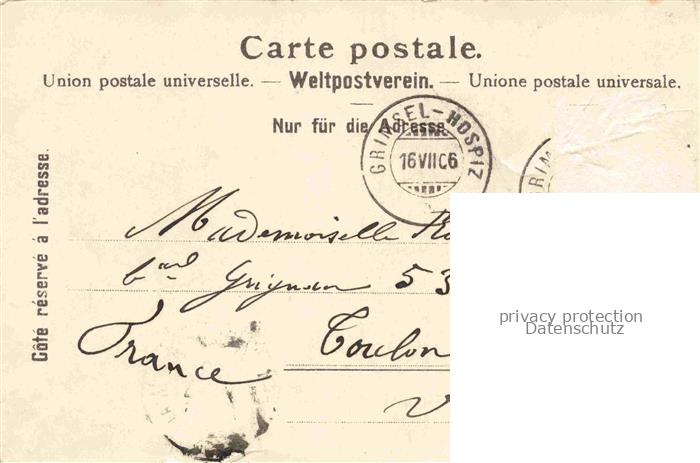 Carte postale.
Union postale universelle. — Weltpostverein. — Unione postale universale.
Nur für die Adresse.
Côté réservé à l'adresse.
GRIMSEL-HOSPIZ
16 VII 06
GRIM
Mademoiselle
bard Grignan 53
Toulon
France
V
privacy protection
Datenschutz